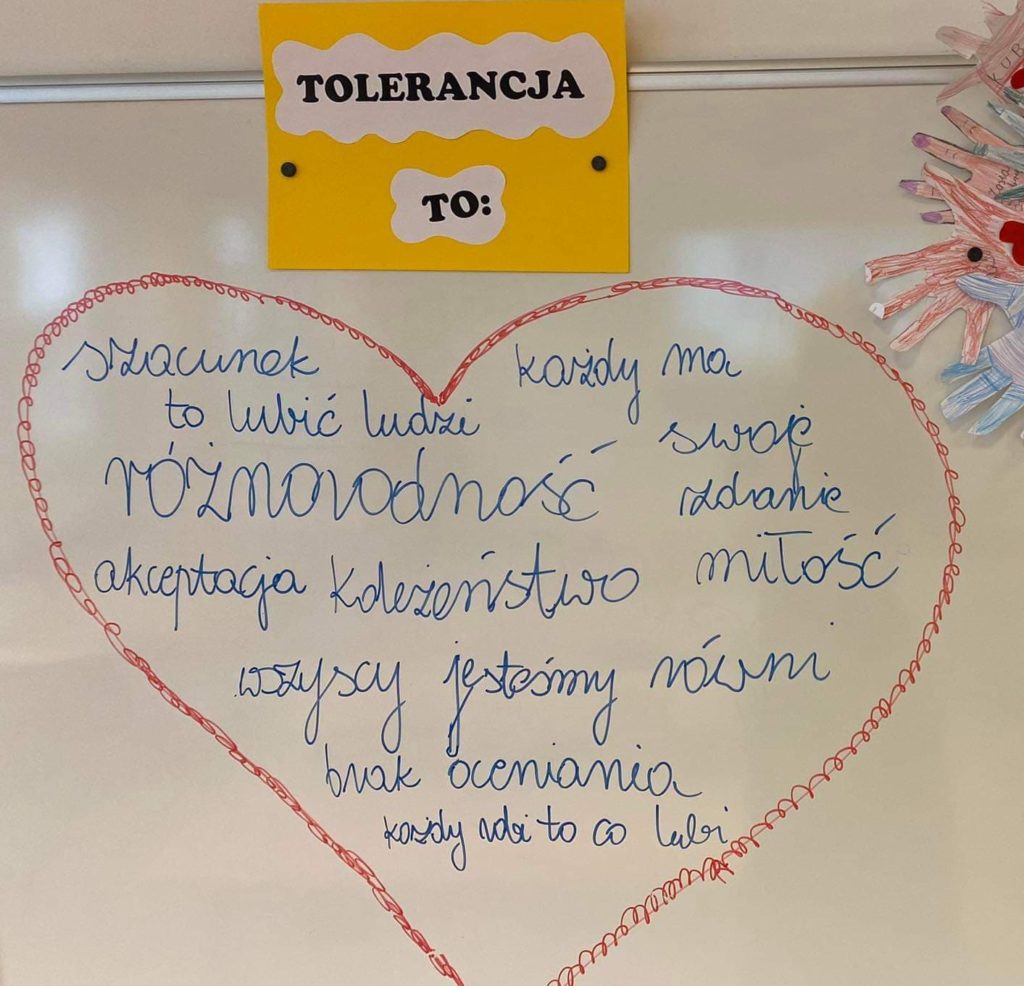 TOLERANCJA
TO:
szacunek
to lubić ludzi
każdy ma
swoje
zdanie
różnorodność
akceptacja
koleżeństwo
miłość
wszyscy jesteśmy równi
brak oceniania
każdy robi to co lubi
KUB